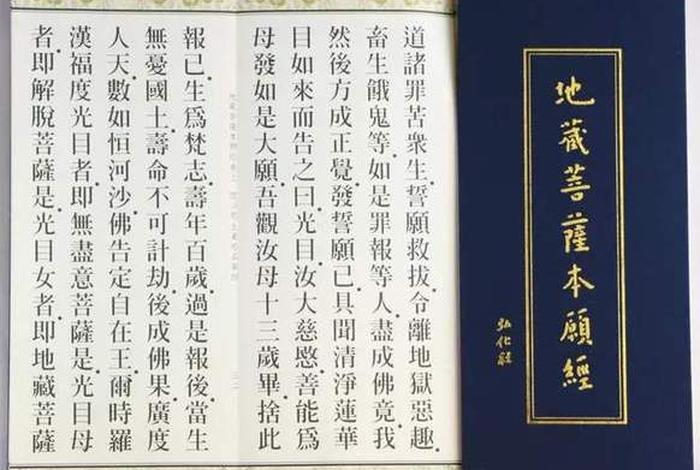 地藏菩薩本願經
弘化社
道諸罪苦衆生。誓願救拔。令離地獄惡趣。
畜生餓鬼等。如是罪報等人。盡成佛竟。我
然後方成正覺。發誓願已。具聞清淨蓮華
目如來而告之曰。光目。汝大慈愍。善能爲
母發如是大願。吾觀汝母十三歲畢。捨此
報已。生爲梵志。壽年百歲。過是報後。當生
無憂國土。壽命不可計劫。後成佛果。廣度
人天。數如恒河沙。佛告定自在王。爾時羅
漢福度光目者。即無盡意菩薩是。光目母
者。即解脫菩薩是。光目女者。即地藏菩薩